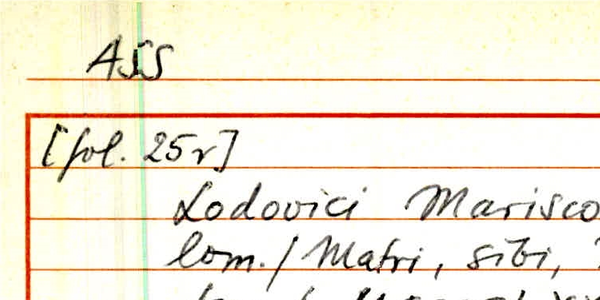 ASS
[fol. 25r]
Lodovici Marisco
Com./Matri, sibi,